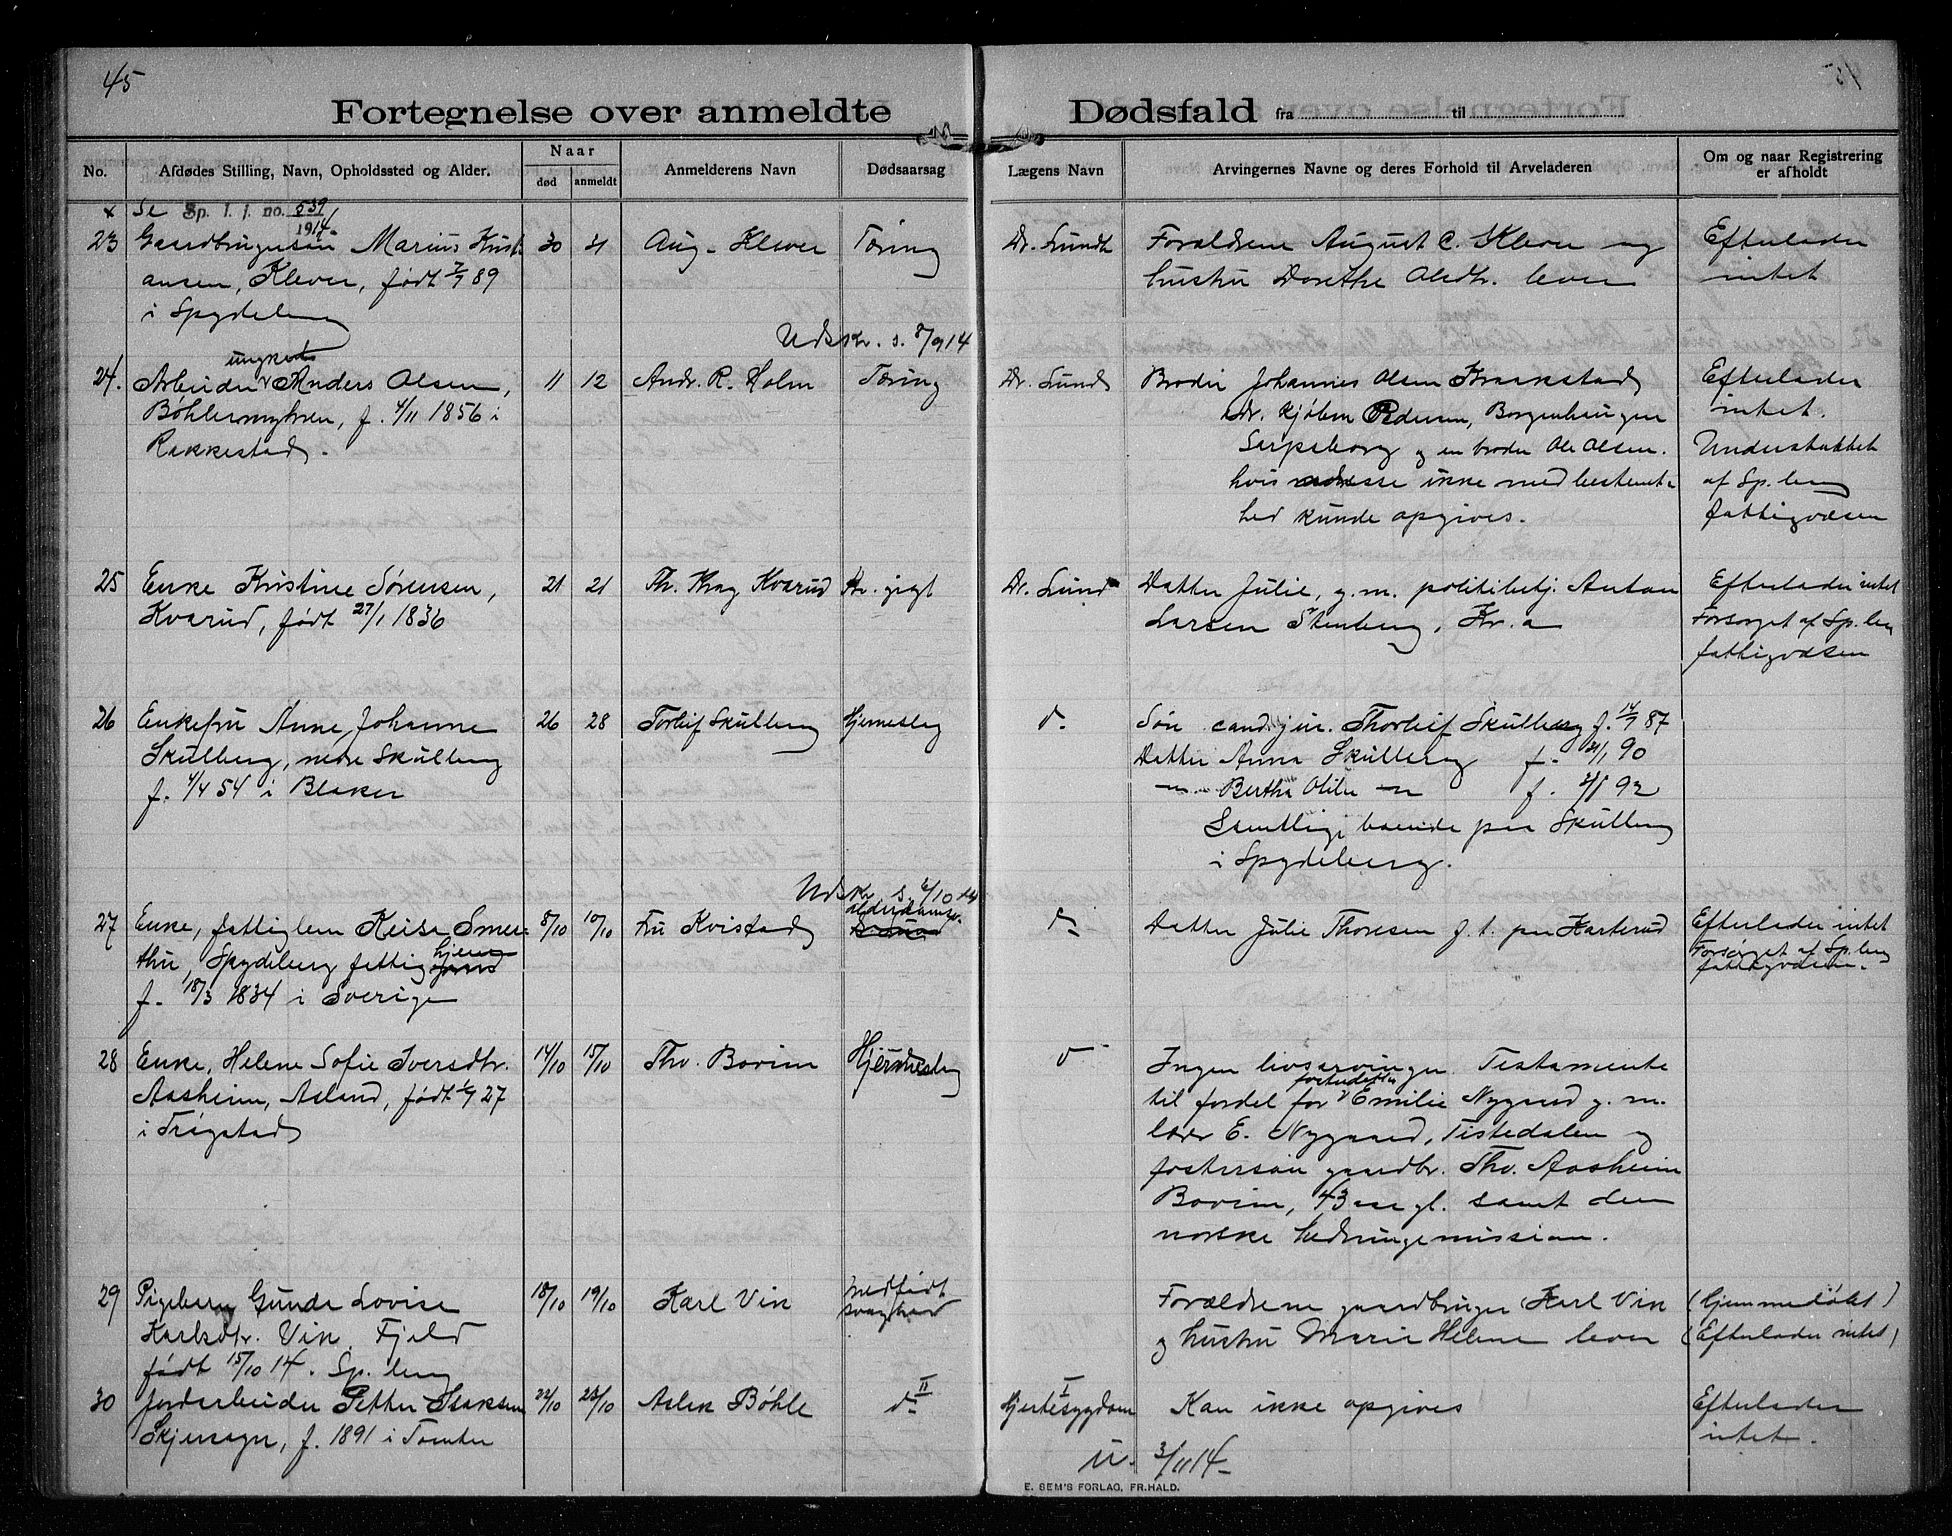 45
Fortegnelse over anmeldte Dødsfald fra til
No.
Afdødes Stilling, Navn, Opholdssted og Alder.
Naar
død
anmeldt
Anmelderens Navn
Dødsaarsag
Lægens Navn
Arvingernes Navne og deres Forhold til Arveladeren
Om og naar Registrering
er afholdt
x Se Sp. l. j. no. 539
1914
23 Gaardbrugersøn Marius Kristi 30 31 Aug. Klever Tæring Dr. Lundh Forældrene August C. Klever og Efterlader
ansen, Klever, født 7/7 89 hustru Dorethe Olsdtr. lever intet
i Spydeberg
Udskr. s. 8/9 14
ungkarls
24. Arbeider Anders Olsen, 11 12 Andr. R. Holm Tæring Dr. Lund Broder Johannes Olsen Kraakstad Efterlader
Bøhlermyhren, f. 4/11 1856 i adr. Kjøbm Pedersen, Borgenhaugen intet.
Rakkestad. Sarpsborg og en broder Ole Olsen. Understøttet
hvis adresse ikke med bestemt- af Sp.berg
hed kunde opgives. fattigvæsen
25 Enke Kristine Sørensen, 21 21 Th. Krog Kvarud kr. gigt Dr. Lund Datter Julie, g.m. politibetj. Anton Efterlader intet
Kvarud, født 27/1 1836 Larsen Stenberg, Kr.a Forsørget af Sp.berg
fattigvæsen
26 Enkefru Anne Johanne 26 28 Torleif Skulberg Hjerneslag d. Søn cand.jur. Thorleif Skulberg f. 14/7 87
Skulberg, nedre Skulberg Datter Anna Skulberg f. 21/1 90
f. 4/4 54 i Blaker —"— Bertha Olile —"— f. 2/8 92
Samtlige boende paa Skulberg
i Spydeberg.
Udskr. s. 6/10 14
27 Enke, fattiglem Keisa Smer- 8/10 10/10 Fru Kvistad alderdomssv. d- Datter Julie Thoresen f. t. paa Karterud Efterlader intet
thu, Spydeberg fattighjem Forsørget af Sp.berg
f. 18/3 1834 i Sverige fattigvæsen.
28 Enke, Helene Sofie Iversdtr. 14/10 15/10 Tho. Bovim Hjerneslag d- Ingen livsarvinger. Testamente
fosterdatter
Aasheim, Asland, født 6/7 27 til fordel for Emilie Nygaard g. m.
i Trøgstad lærer E. Nygaard, Tistedalen og
fostersøn gaardbr. Tho. Aasheim
Bovim, 43 aar gl. samt den
norske Hedningemission.
29 Pigebarn Gunda Lovise 18/10 19/10 Karl Vik medfødt Forældrene gaardbruger Karl Vik (Hjemmedøbt)
Karlsdtr. Vik, Fjeld svaghed og hustru Marie Helene lever (Efterlader intet)
født 15/10 14. Sp.berg
30 Jordarbeider Petter Isaksen 22/10 23/10 Aslak Bøhle d- II I Hjertesygdom Kan ikke opgives Efterlader
Skjersagn, f. 1891 i Tomter intet.
U. 3/11 14
E. SEM'S FORLAG, FR.HALD.